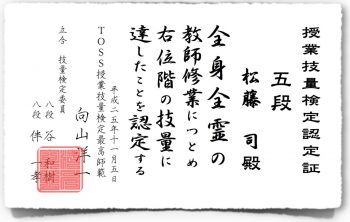 授業技量検定認定証
五段
松藤 司殿
全身全霊の
教師修業につとめ
右位階の技量に
達したことを認定する
平成二五年十一月五日
TOSS授業技量検定最高師範
向山洋一
立合 技量検定委員
八段 谷 和樹
八段 伴 一孝